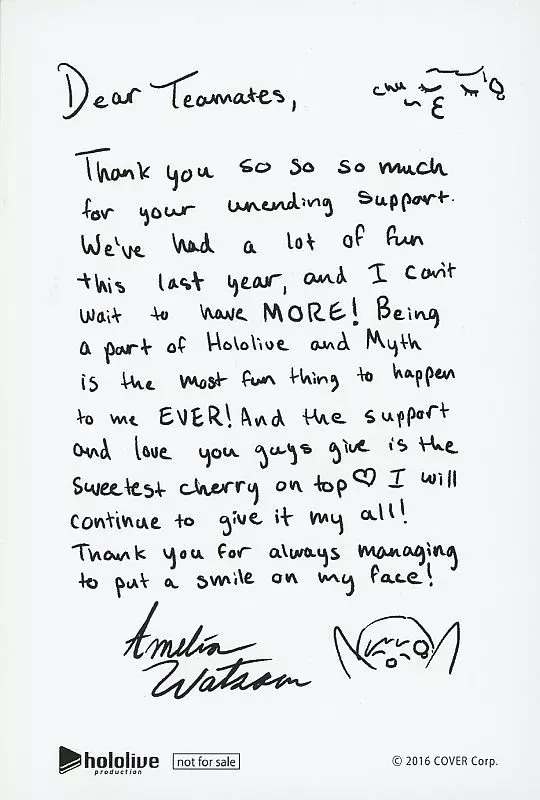 Dear Teamates,
chu
Thank you so so so much
for your unending support.
We've had a lot of fun
this last year, and I can't
wait to have MORE! Being
a part of Hololive and Myth
is the most fun thing to happen
to me EVER! And the support
and love you guys give is the
sweetest cherry on top♡ I will
continue to give it my all!
Thank you for always managing
to put a smile on my face!
Amelia
Watson
hololive
production
not for sale
© 2016 COVER Corp.